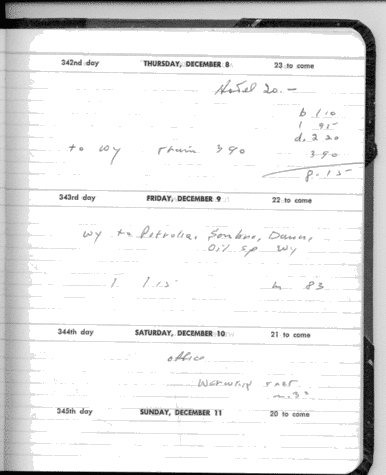 342nd day THURSDAY, DECEMBER 8 23 to come
Hotel 20.-
b 1.10
l 95
d. 2 20
to Wy train 3 90 3.90
8.15
343rd day FRIDAY, DECEMBER 9 22 to come
Wy to Petrolia, Sombra, Dawn,
Oil Sp Wy
l 1.15 83
344th day SATURDAY, DECEMBER 10 21 to come
office
345th day SUNDAY, DECEMBER 11 20 to come